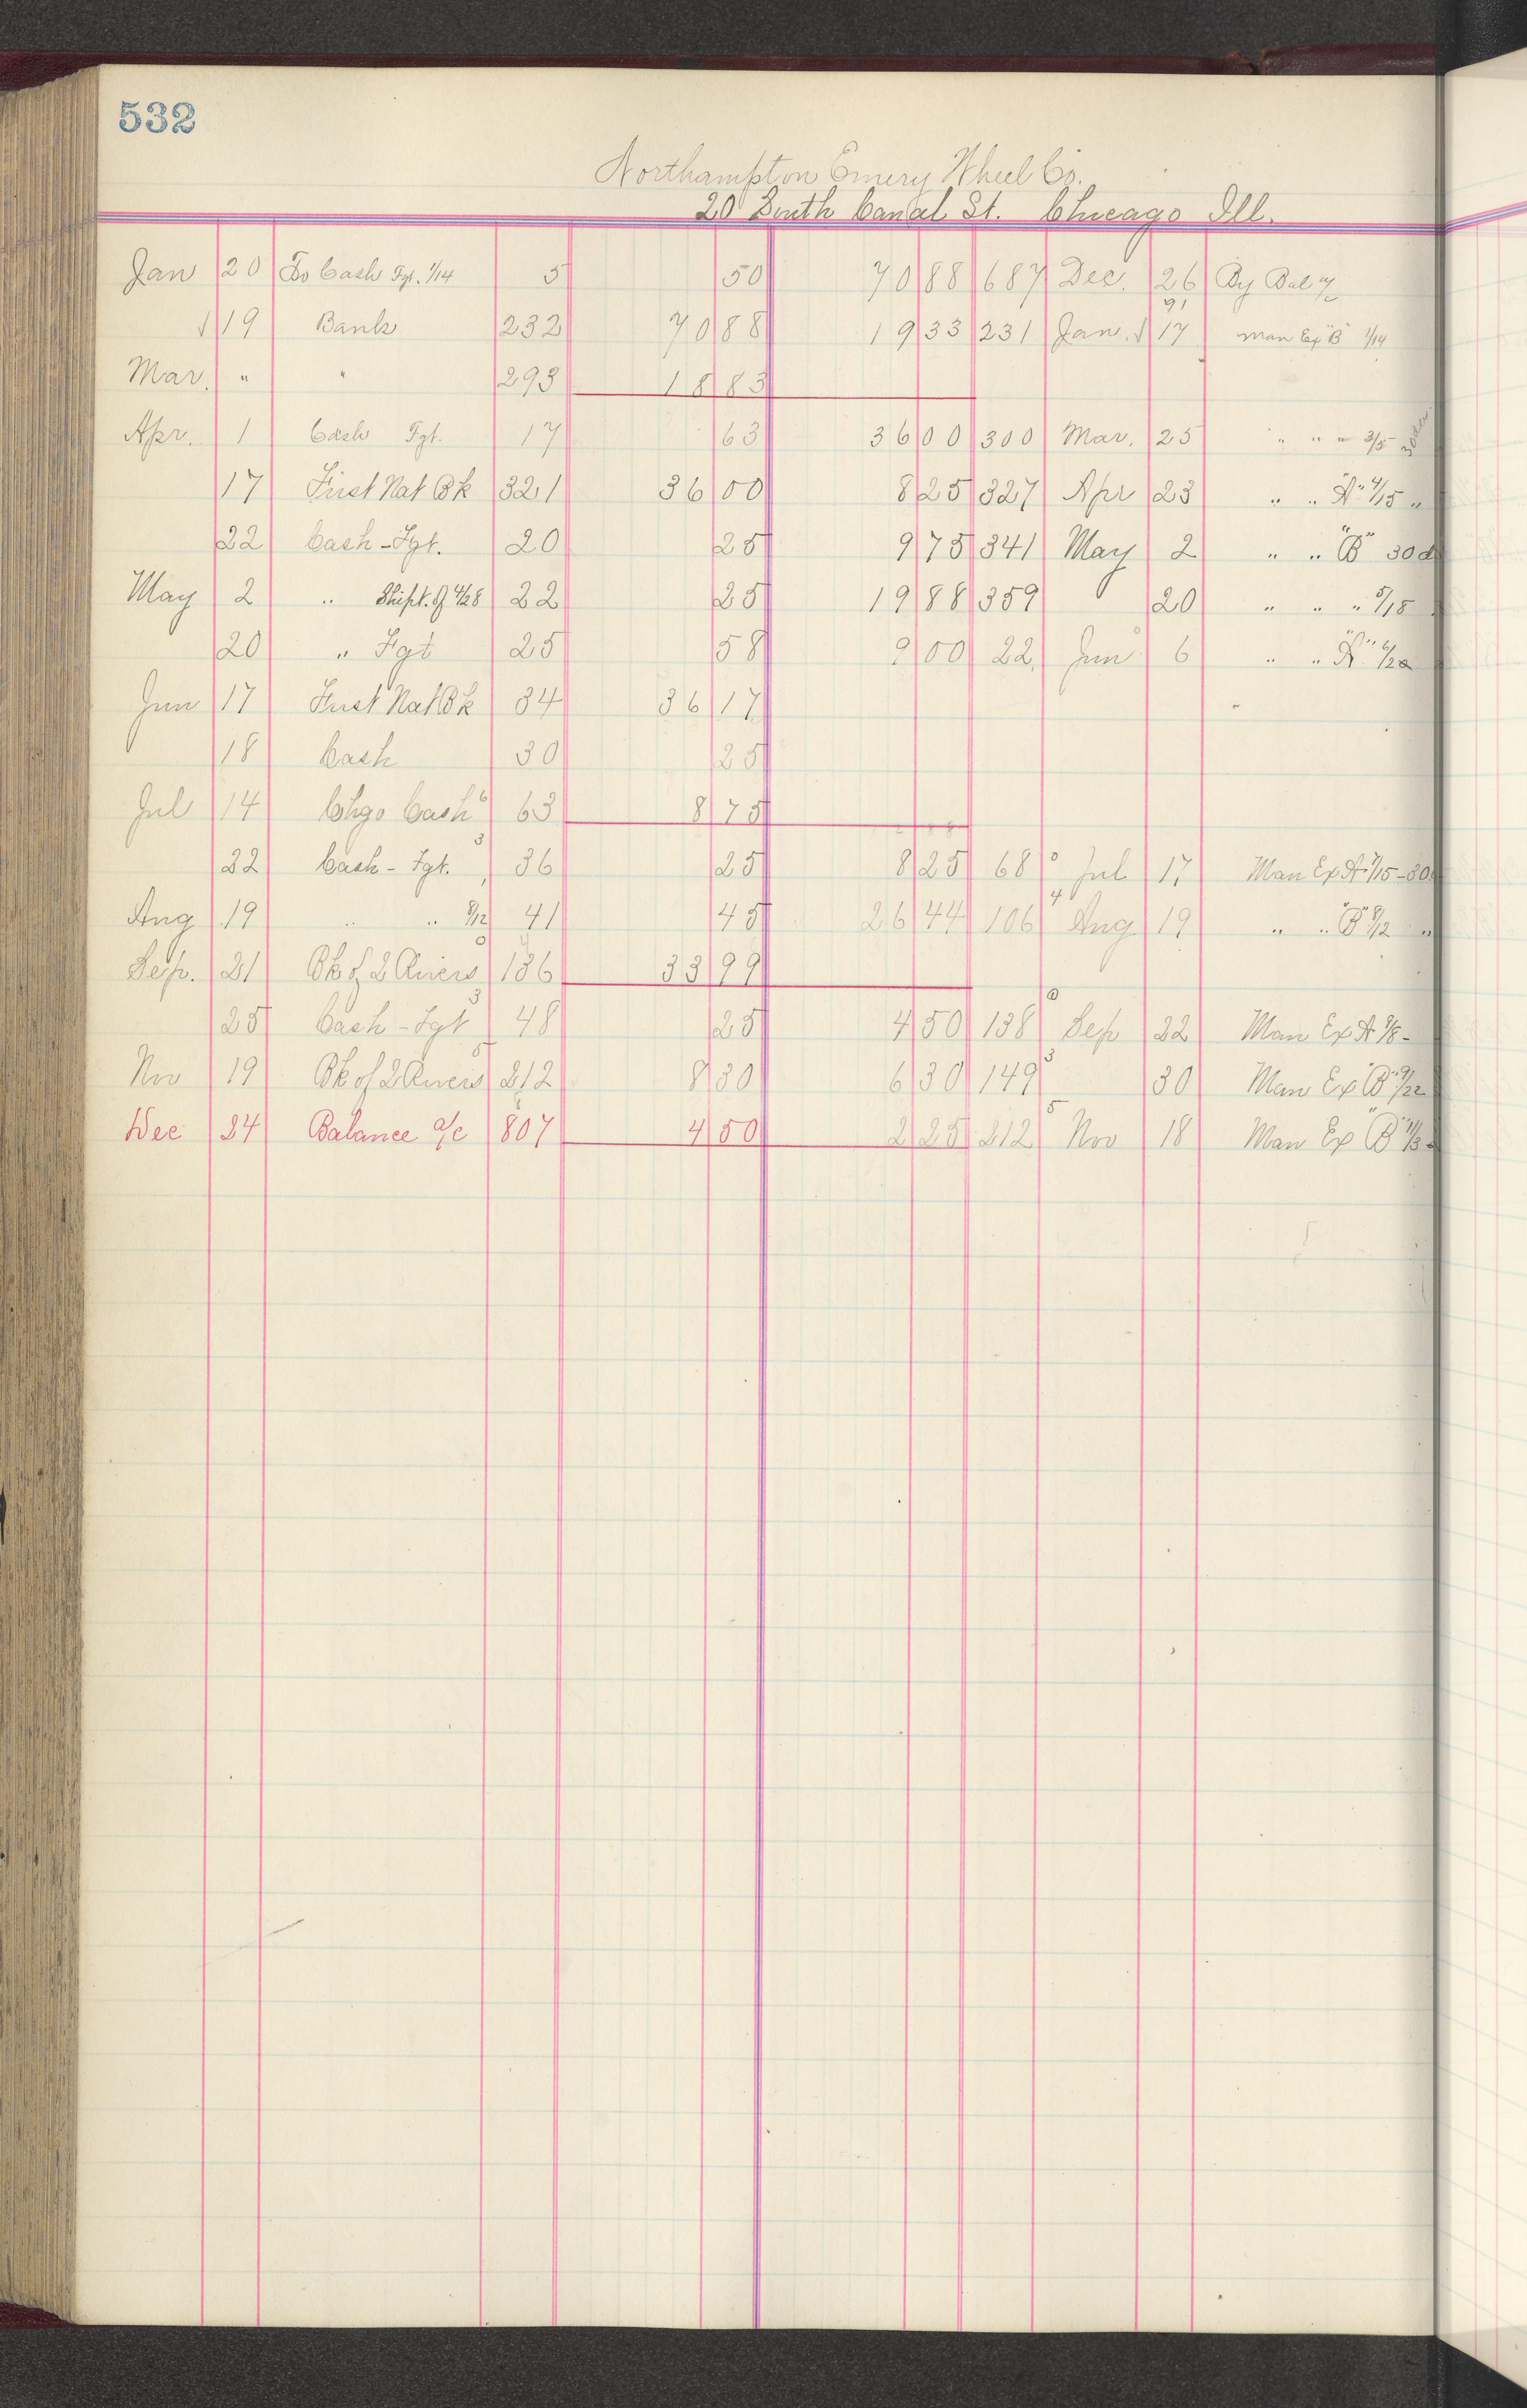 532
Northampton Emery Wheel Co.
20 South Canal St. Chicago Ill.
Jan 20 To Cash Fgt. 1/14 5 50 70 88 687 Dec. 26 By Bal a/c
√ 19 Bank 232 70 88 19 33 231 Jan. √ 91 17 Man Ex "B" 1/14
Mar. " " 293 18 83
Apr. 1 Cash Fgt. 17 63 36 00 300 Mar. 25 " " " 3/5
17 First Nat Bk 321 36 00 8 25 327 Apr 23 " " "A" 4/15 "
22 Cash - Fgt. 20 25 9 75 341 May 2 " " "B" 30 d
May 2 " Shipt. of 4/28 22 25 19 88 359 20 " " " 5/15
20 " Fgt 25 58 9 00 22 Jun 6 " " "A"
Jun 17 First Nat Bk 34 36 17
18 Cash 30 25
Jul 14 Chgo Cash 6 63 8 75
22 Cash - Fgt. 3 36 25 8 25 68 0 Jul 17 Man Ex A 7/15 - 30
Aug 19 " " 8/12 41 45 26 44 106 4 Aug 19 " " "B" 8/12 "
Sep. 21 Bk of 2 Rivers 0 136 33 99
25 Cash - Fgt 3 48 25 4 50 138 0 Sep 22 Man Ex A 9/8 -
Nov 19 Bk of 2 Rivers 5 212 8 30 6 30 149 3 30 Man Ex "B" 9/22
Dec 24 Balance a/c 807 4 50 2 25 212 5 Nov 18 Man Ex "B"